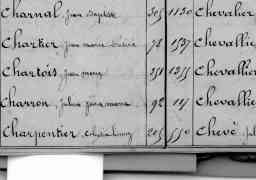 Charnal, Jean Baptiste 305 1130 Chevalier
Chartier, Jean marie 78 1537 Chevallie
Chartois, Jean 251 1255 Chevallier
Charron, Julien Jean marie 92 117 Chevallie
Charpentier 205 550 Chevé